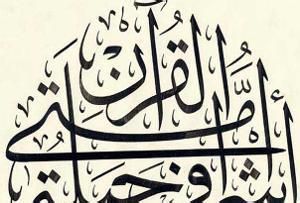 أشراف أُمَّتي حملة القرآن